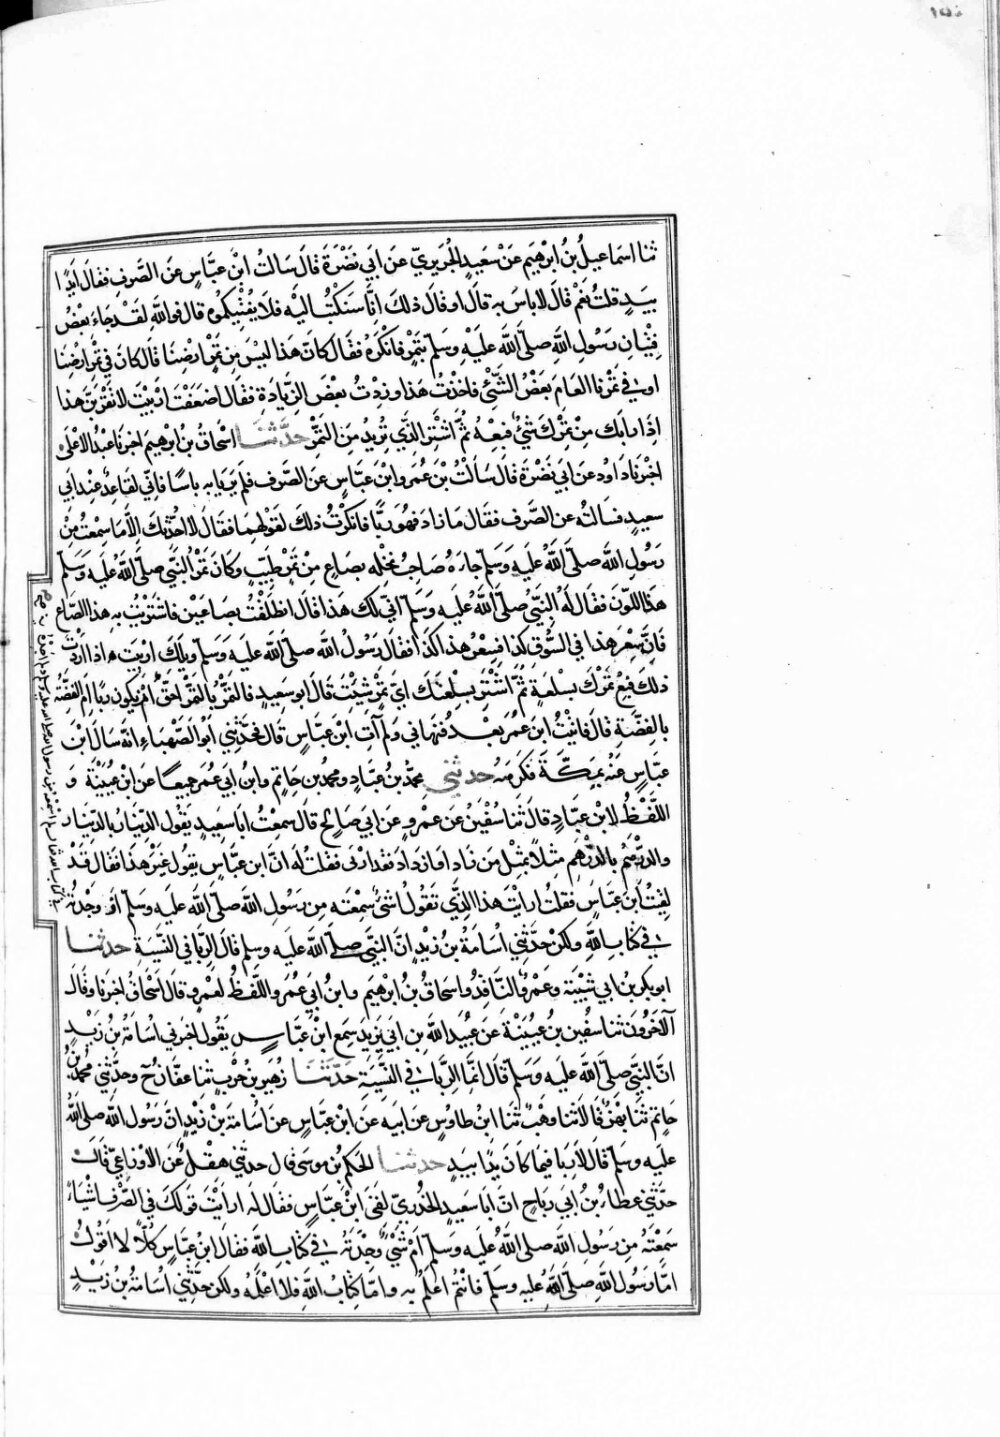 ثنا اسماعيل بن ابرهيم عن سعيد الجريري عن ابي نضرة قال سالت ابن عباس عن الصرف فقال ايدا
بيد قلت نعم قال لا باس به قال او قال ذلك انا سنكتب اليه فلا يفتيكموه قال فوالله لقد جاء بعض
فتيان رسول الله صلى الله عليه وسلم بتمر فانكره فقال كان هذا ليس من تمر ارضنا قال كان في تمر ارضنا
او في تمرنا العام بعض الشئ فاخذت هذا وزدت بعض الزيادة فقال اضعفت اربيت لا تقربن هذا
اذا رابك من تمرك شئ فبعه ثم اشتر الذي تريد من التمر حدثنا اسحاق بن ابرهيم اخبرنا عبد الاعلى
اخبرنا داود عن ابي نضرة قال سالت بن عمر وابن عباس عن الصرف فلم يريا به باسا فاني لقاعد عند ابي
سعيد فسالته عن الصرف فقال ما زاد فهو ربا فانكرت ذلك لقولهما فقال لا احدثك الا ما سمعت من
رسول الله صلى الله عليه وسلم جاءه صاحب نخله بصاع من تمر طيب وكان تمر النبي صلى الله عليه وسلم
هذا اللون فقال له النبي صلى الله عليه وسلم انى لك هذا قال انطلقت بصاعين فاشتريت به هذا الصاع
فان سعر هذا في السوق كذا وسعر هذا كذا فقال رسول الله صلى الله عليه وسلم ويلك اربيت اذا اردت
ذلك فبع تمرك بسلعة ثم اشتر بسلعتك اي تمر شئت قال ابو سعيد فالتمر بالتمر احق ان يكون ربا ام الفضة
بالفضة قال فاتيت ابن عمر بعد فنهاني ولم آت ابن عباس قال فحدثني ابو الصهباء انه سال ابن
عباس عنه بمكة فكرهه حدثني محمد بن عباد ومحمد بن حاتم وابن ابي عمر جميعا عن ابن عيينة و
اللفظ لابن عباد قال ثنا سفين عن عمرو عن ابي صالح قال سمعت ابا سعيد يقول الدينار بالدينار
والدرهم بالدرهم مثلا بمثل من زاد او ازداد فقد اربى فقلت له ان ابن عباس يقول غير هذا فقال قد
لقيت ابن عباس فقلت ارايت هذا الذي تقول اشئ سمعته من رسول الله صلى الله عليه وسلم او وجدته
في كتاب الله ولكن حدثني اسامة بن زيد ان النبي صلى الله عليه وسلم قال الربا في النسية حدثنا
ابو بكر بن ابي شيبة وعمرو الناقد واسحاق بن ابرهيم وابن ابي عمر واللفظ لعمرو قال اسحاق اخبرنا وقال
آلاخرون ثنا سفين بن عيينة عن عبيد الله بن ابي يزيد سمع ابن عباس يقول اخبرني اسامة بن زيد
ان النبي صلى الله عليه وسلم قال انما الربا في النسية حدثنا زهير بن حرب ثنا عفان ح وحدثني محمد بن
حاتم ثنا بهز قالا ثنا وهب ثنا ابن طاوس عن ابيه عن ابن عباس عن اسامة بن زيد ان رسول الله صلى الله
عليه وسلم قال لا ربا فيما كان يدا بيد حدثنا الحكم بن موسى قال حدثني هقل عن الاوزاعي قال
حدثني عطاء بن ابي رباح ان ابا سعيد الخدري لقى ابن عباس فقال له ارايت قولك في الصرف اشياء
سمعته من رسول الله صلى الله عليه وسلم ام شئ وجدته في كتاب الله فقال ابن عباس كلا لا اقول
اما رسول الله صلى الله عليه وسلم فانتم اعلم به واما كتاب الله فلا اعلمه ولكن حدثني اسامة بن زيد